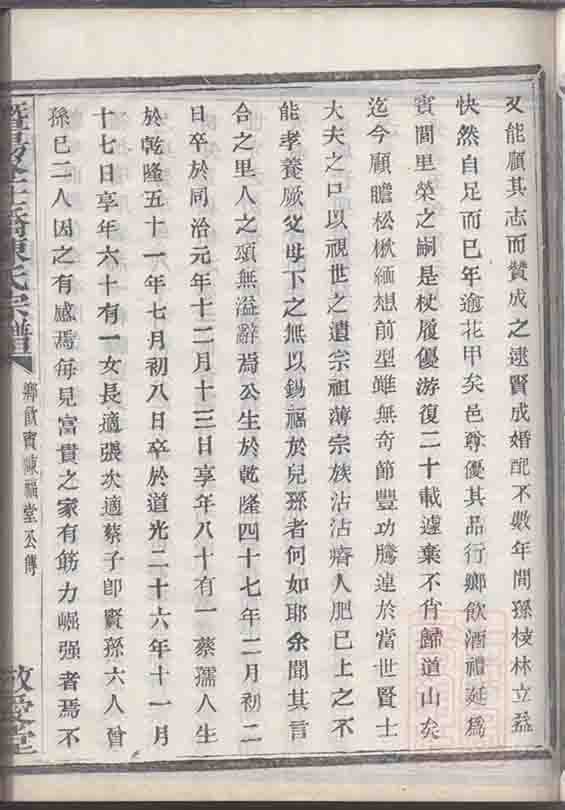 又能顧其志而贊成之逮賢成婚配不數年間孫枝林立益
快然自足而已年逾花甲矣邑尊優其品行鄉飲酒禮延爲
賓閭里榮之嗣是杖履優游復二十載遽棄不肖歸道山矣
迄今顧瞻松楸緬想前型雖無奇節豐功騰達於當世賢士
大夫之口以視世之遺宗祖薄宗族沾沾瘠人肥已上之不
能孝養厥父母下之無以錫福於兒孫者何如耶余聞其言
合之里人之頌無溢辭焉公生於乾隆四十七年二月初二
日卒於同治元年十二月十三日享年八十有一蔡孺人生
於乾隆五十一年七月初八日卒於道光二十六年十一月
十七日享年六十有一女長適張次適蔡子卽賢孫六人曾
孫已二人因之有感焉每見富貴之家有筋力崛强者焉不
陳氏宗譜
鄉飲賓諫福堂公傳
敘愛堂